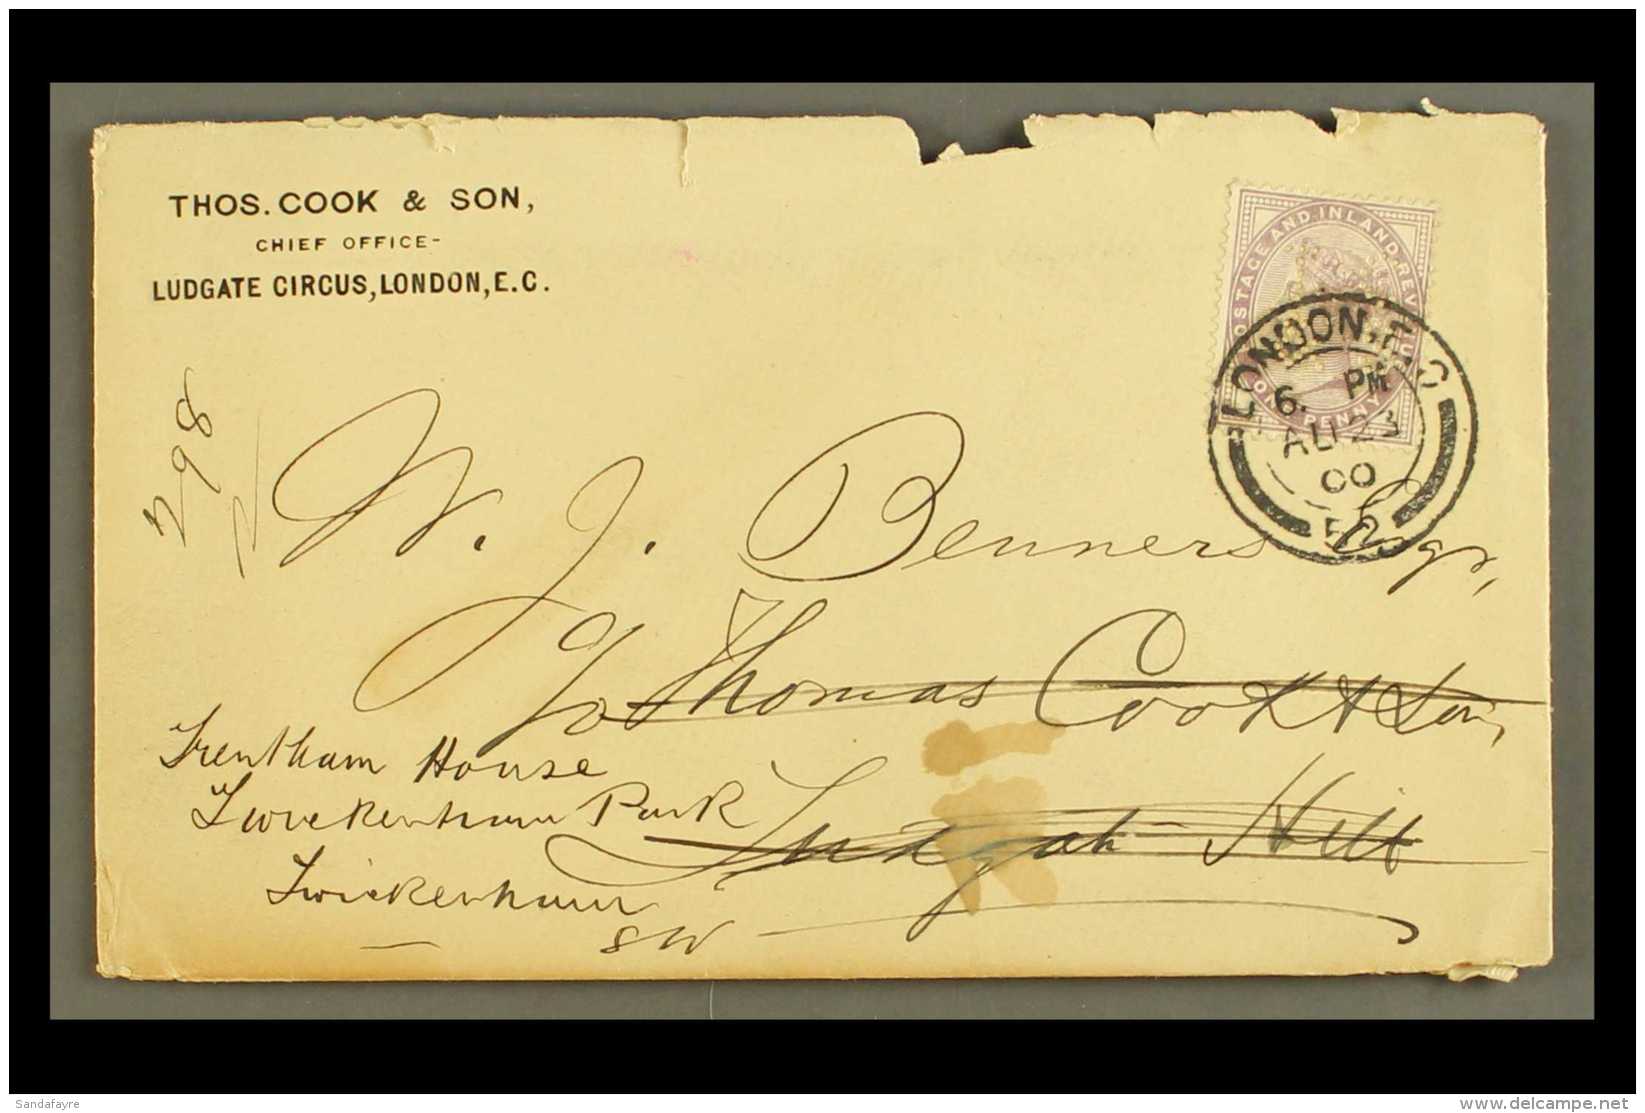 THOS. COOK & SON,
CHIEF OFFICE-
LUDGATE CIRCUS, LONDON, E.C.
POSTAGE AND INLAND REVENUE
ONE PENNY
LONDON. E.C
6. PM
AU 23
00
52
298
W. J. Benners Esqr,
c/o Thomas Cook & Son,
Ludgate Hill
Trentham House
Twickenham Park
Twickenham
SW
Sandafayre
www.delcampe.net